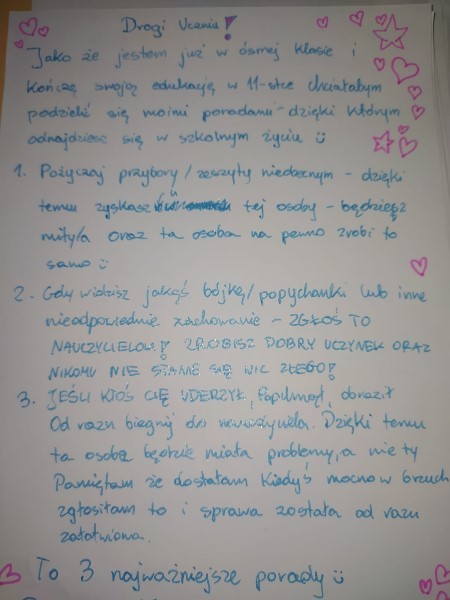 Drogi Uczniu!
Jako że jestem już w ósmej klasie i
kończę swoją edukację w 11-stce chciałabym
podzielić się moimi poradami - dzięki którym
odnajdziesz się w szkolnym życiu ü
1. Pożyczaj przybory/zeszyty nieobecnym - dzięki
temu zyskasz u tej osoby - będziesz
miły/a oraz ta osoba na pewno zrobi to
samo ü
2. Gdy widzisz jakąś bójkę/popychanki lub inne
nieodpowiednie zachowanie - ZGŁOŚ TO
NAUCZYCIELOWI! ZROBISZ DOBRY UCZYNEK ORAZ
NIKOMU NIE STANIE SIĘ NIC ZŁEGO!
3. JEŚLI KTOŚ CIĘ UDERZYŁ, Popchnął, obraził
Od razu biegnij do nauczyciela. Dzięki temu
ta osoba będzie miała problemy, a nie ty
Pamiętam że dostałam kiedyś mocno w brzuch
zgłosiłam to i sprawa została od razu
załatwiona.
To 3 najważniejsze porady ü